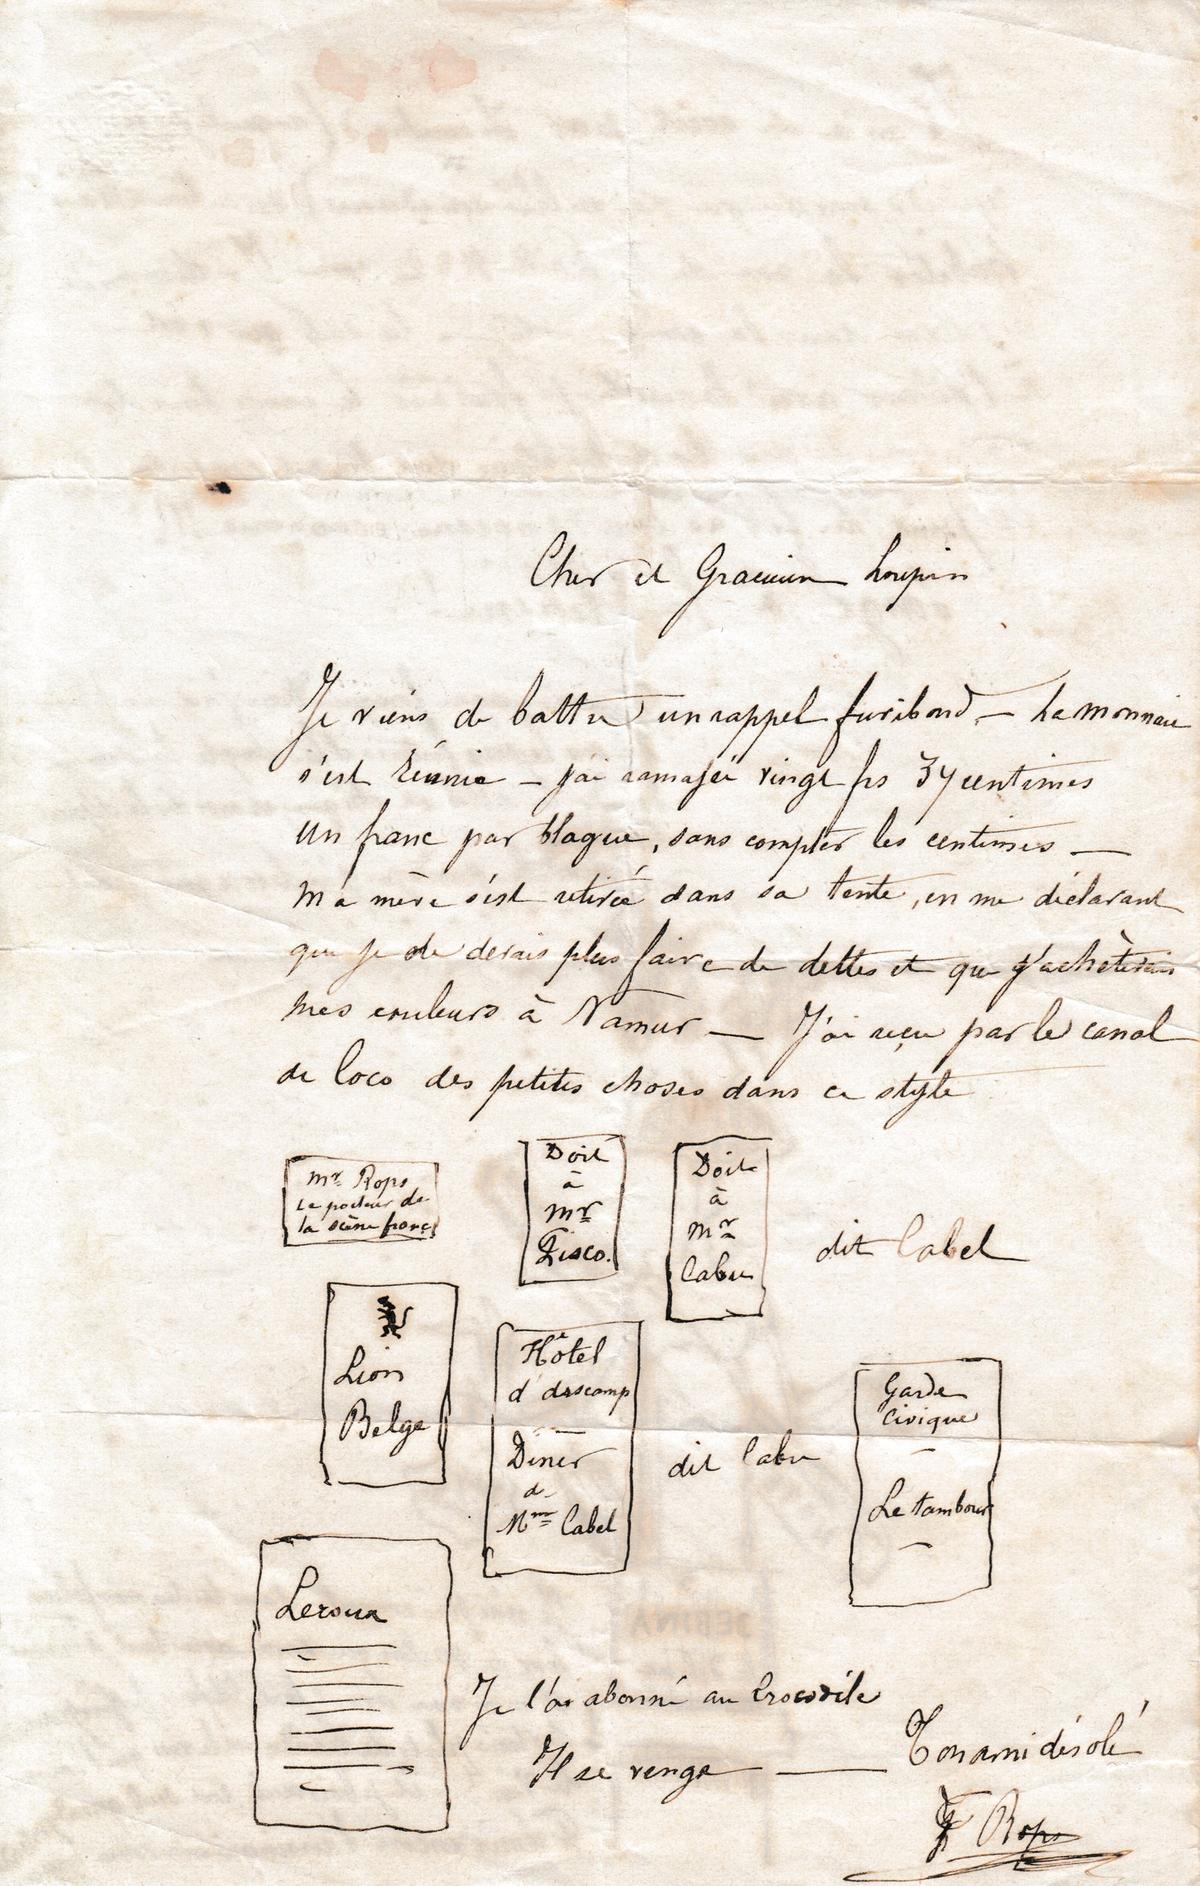 Cher et Gracieux Loupin
Je viens de battre un rappel furibond — La monnaie
s'est réunie — j'ai ramassé vingt frs 37 centimes
un franc par blague, sans compter les centimes —
Ma mère s'est retirée dans sa tente, en me déclarant
que je ne devais plus faire de dettes et que j'achèterais
mes couleurs à Namur — J'ai reçu par le canal
de loco des petites choses dans ce style
Mr Rops
Le porteur de
la scène franç
Doit
à
Mr
Fisco.
Doit
à
Mr
Cabu
dit Cabel
Lion
Belge
Hôtel
d'ascamp
Diner
de
Mme Cabel
dit Cabu
Garde
Civique
—
Le tambour
—
Leroux
Je l'ai abonné au Crocodile
Il se venge —
Ton ami désolé
F Rops